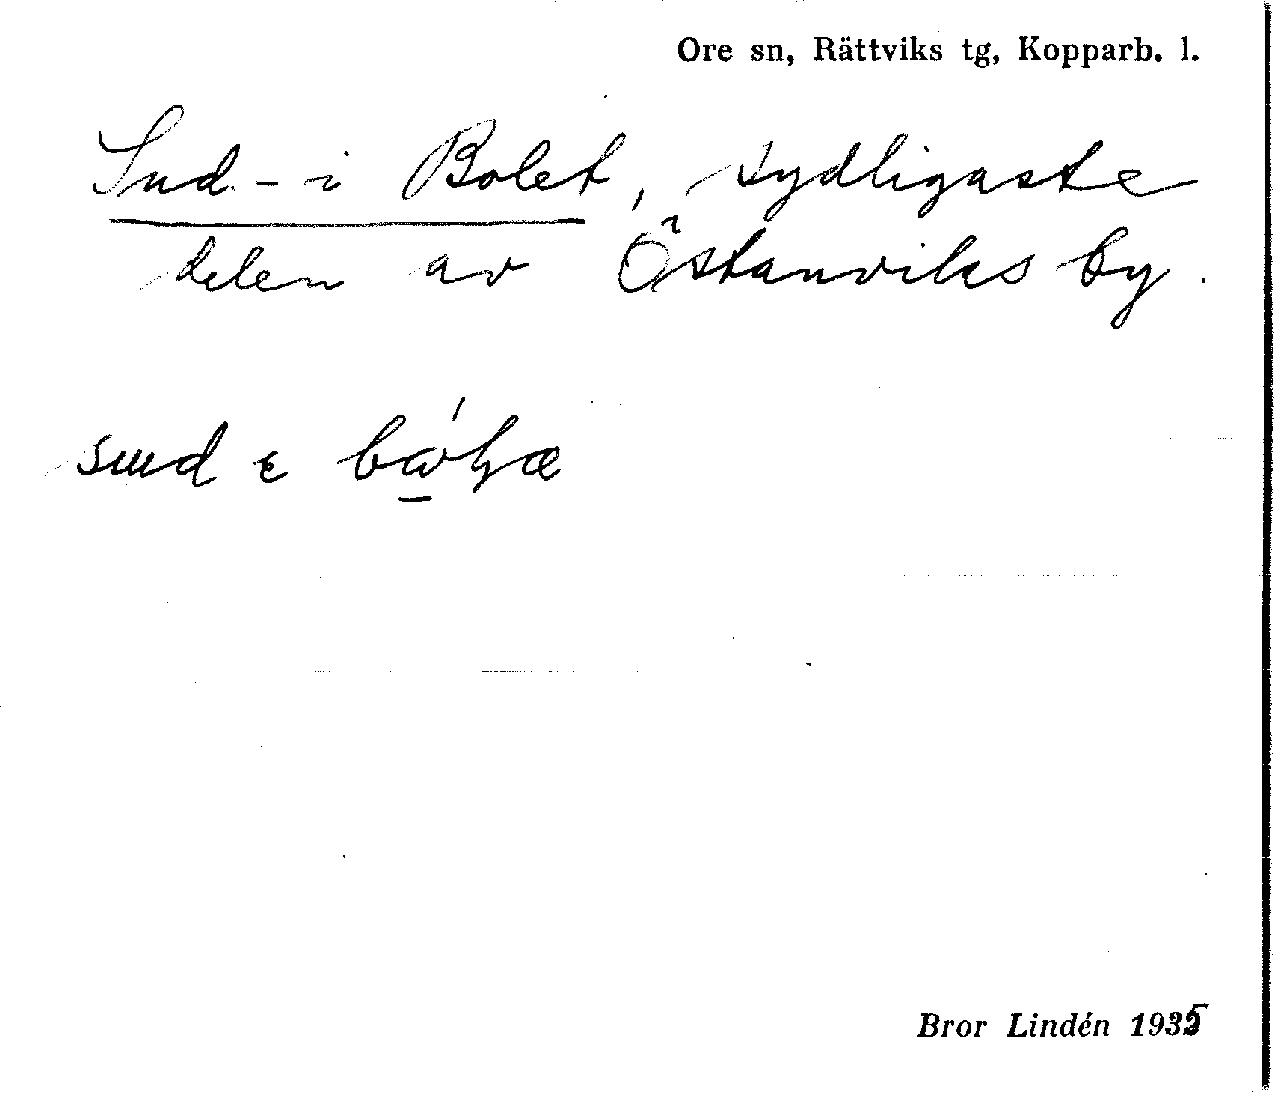 Ore sn, Rättviks tg, Kopparb. l.
Sud-i Bolet, sydligaste
delen av Östanviks by.
Bror Lindén 1935